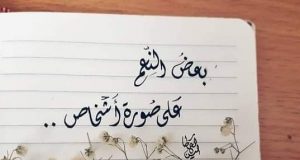 بعضُ النِّعم
على صُورة أشخاص ..